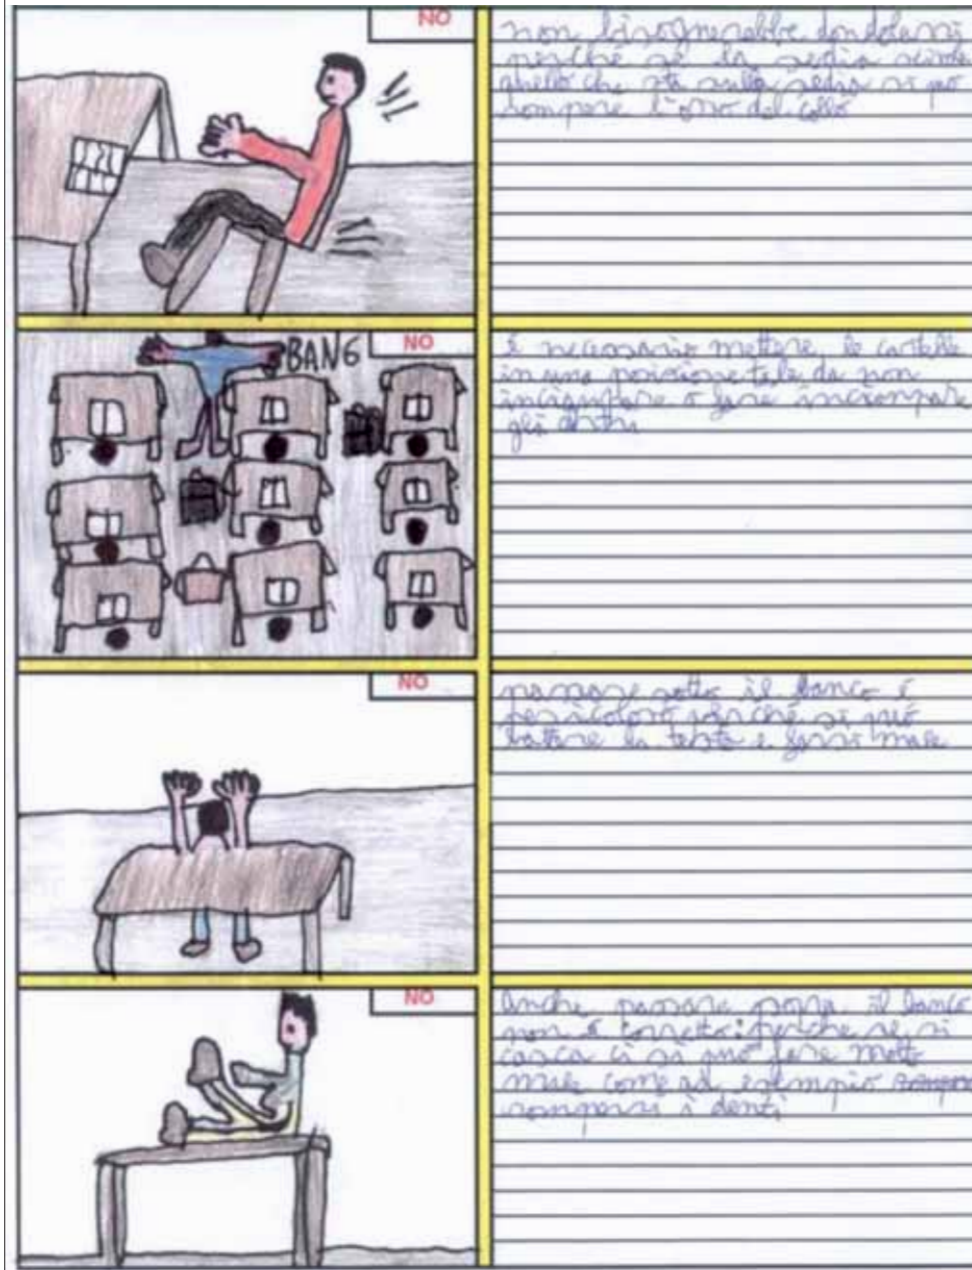 NO
non bisognerebbe dondolarsi
perché se la sedia scivola
quello che sta sulla sedia si può
rompere l'osso del collo
BANG
NO
è necessario mettere le cartelle
in una posizione tale da non
inciampare o fare inciampare
gli altri
NO
passare sotto il banco é
pericoloso perché si può
battere la testa e farsi male
NO
anche passare sopra il banco
non é corretto: perche se si
casca ci si può fare molto
male come ad esempio
rompersi i denti